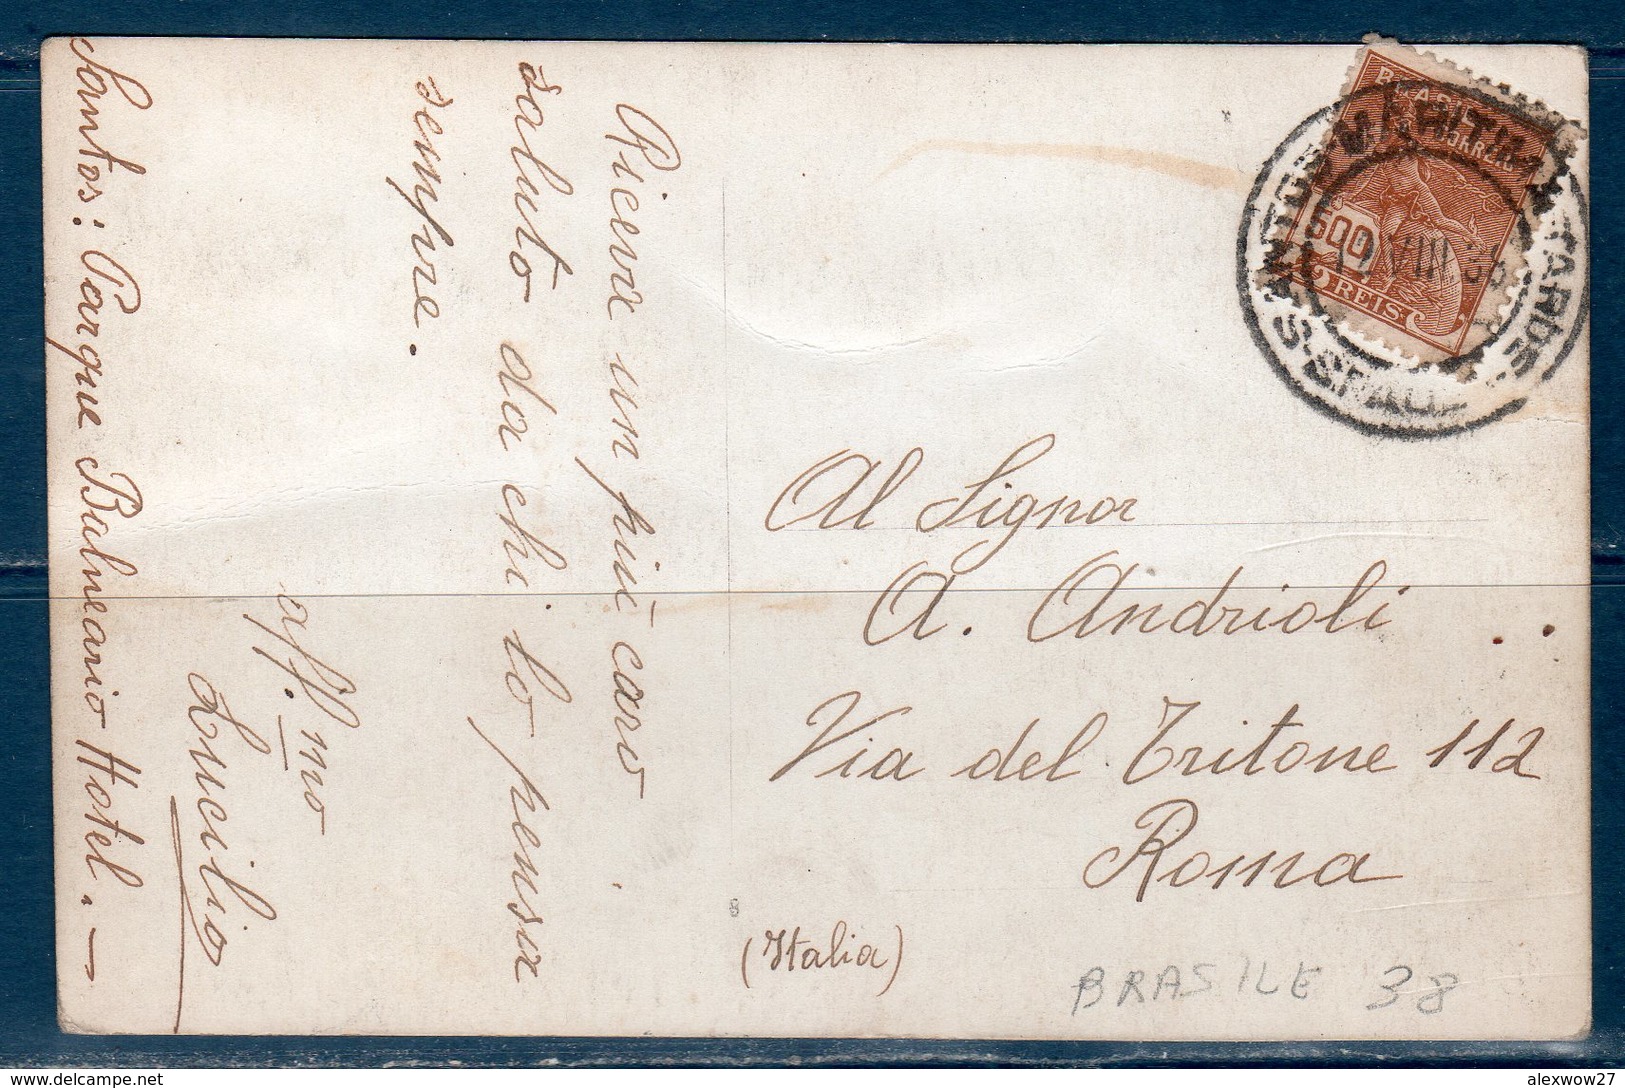 Santos: Parque Balneario Hotel. —
Riceva un più caro
saluto da chi lo pensa
sempre.
aff.mo
Lucilio
BRASIL
CORREIO
600
REIS
SANTOS-S.PAULO
MARITIMA
TARDE
12 VIII 38
Al Signor
A. Andrioli
Via del Tritone 112
Roma
(Italia)
8
BRASILE 38
alexwow27
www.delcampe.net